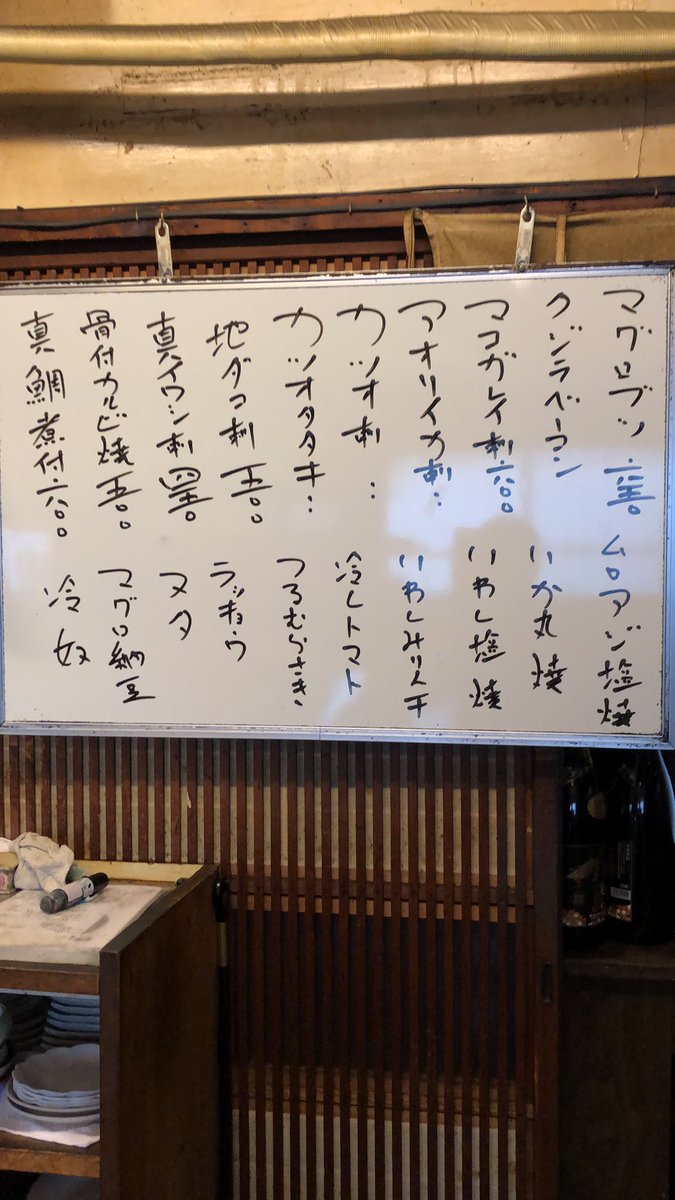 マグロブツ 六五〇
クジラベーコン
マコガレイ刺 六〇〇
アオリイカ刺 :
カツオ刺 :
カツオタタキ :
地ダコ刺 五〇〇
真イワシ刺 四五〇
骨付カルビ焼 五〇〇
真鯛煮付 六〇〇
ムロアジ塩焼
いか丸焼
いわし塩焼
いわしみりん干
冷しトマト
つるむらさき
ラッキョウ
ヌタ
マグロ納豆
冷奴